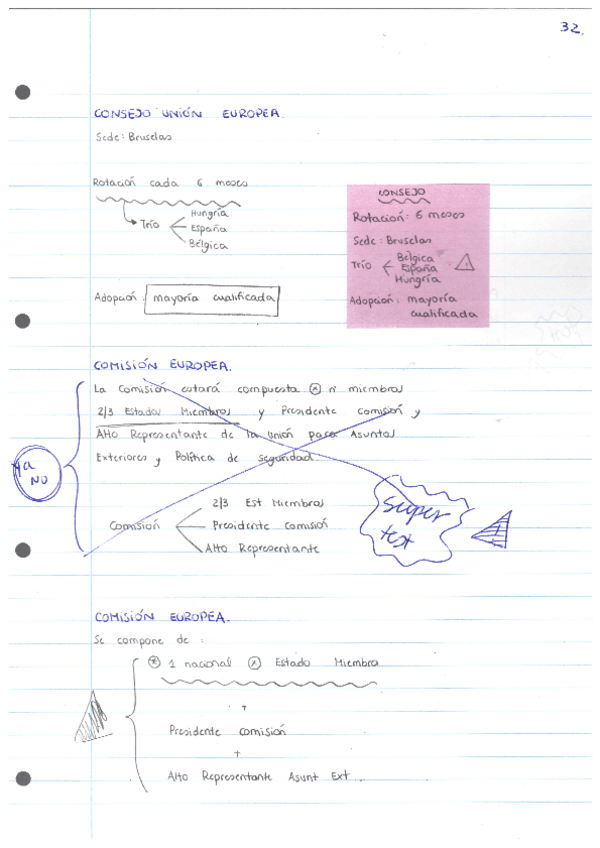 32.
CONSEJO UNIÓN EUROPEA.
Sede: Bruselas
Rotación cada 6 meses
Trío
Hungría
España
Bélgica
Adopción: mayoría cualificada
CONSEJO
Rotación: 6 meses
Sede: Bruselas
Trío
Bélgica
España
Hungría
Adopción: mayoría
cualificada
COMISIÓN EUROPEA.
La Comisión estará compuesta x nº miembros
2/3 Estados Miembros y Presidente comisión y
Alto Representante de la Unión para Asuntos
Exteriores y Política de Seguridad.
Ya
NO
Comisión
2/3 Est Miembros
Presidente Comisión
Alto Representante
Super
test
COMISIÓN EUROPEA.
Se compone de:
1 nacional x Estado Miembro
+
Presidente comisión
+
Alto Representante Asunt Ext.